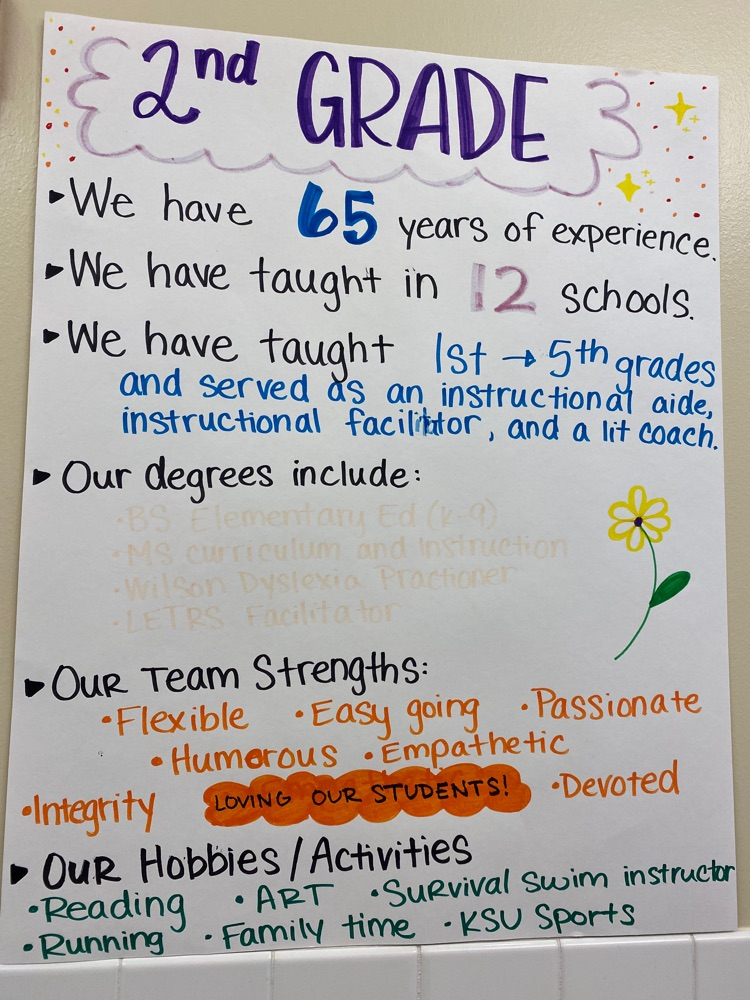 2nd GRADE
▸We have 65 years of experience.
▸We have taught in 12 schools.
▸We have taught 1st → 5th grades
and served as an instructional aide,
instructional facilitator, and a lit coach.
▸Our degrees include:
·BS Elementary Ed (K-9)
·MS curriculum and Instruction
·Wilson Dyslexia Practioner
·LETRS Facilitator
▸Our Team Strengths:
·Flexible ·Easy going ·Passionate
·Humorous ·Empathetic
·Integrity LOVING OUR STUDENTS! ·Devoted
▸Our Hobbies/Activities
·Reading ·ART ·Survival Swim instructor
·Running ·Family time ·KSU Sports